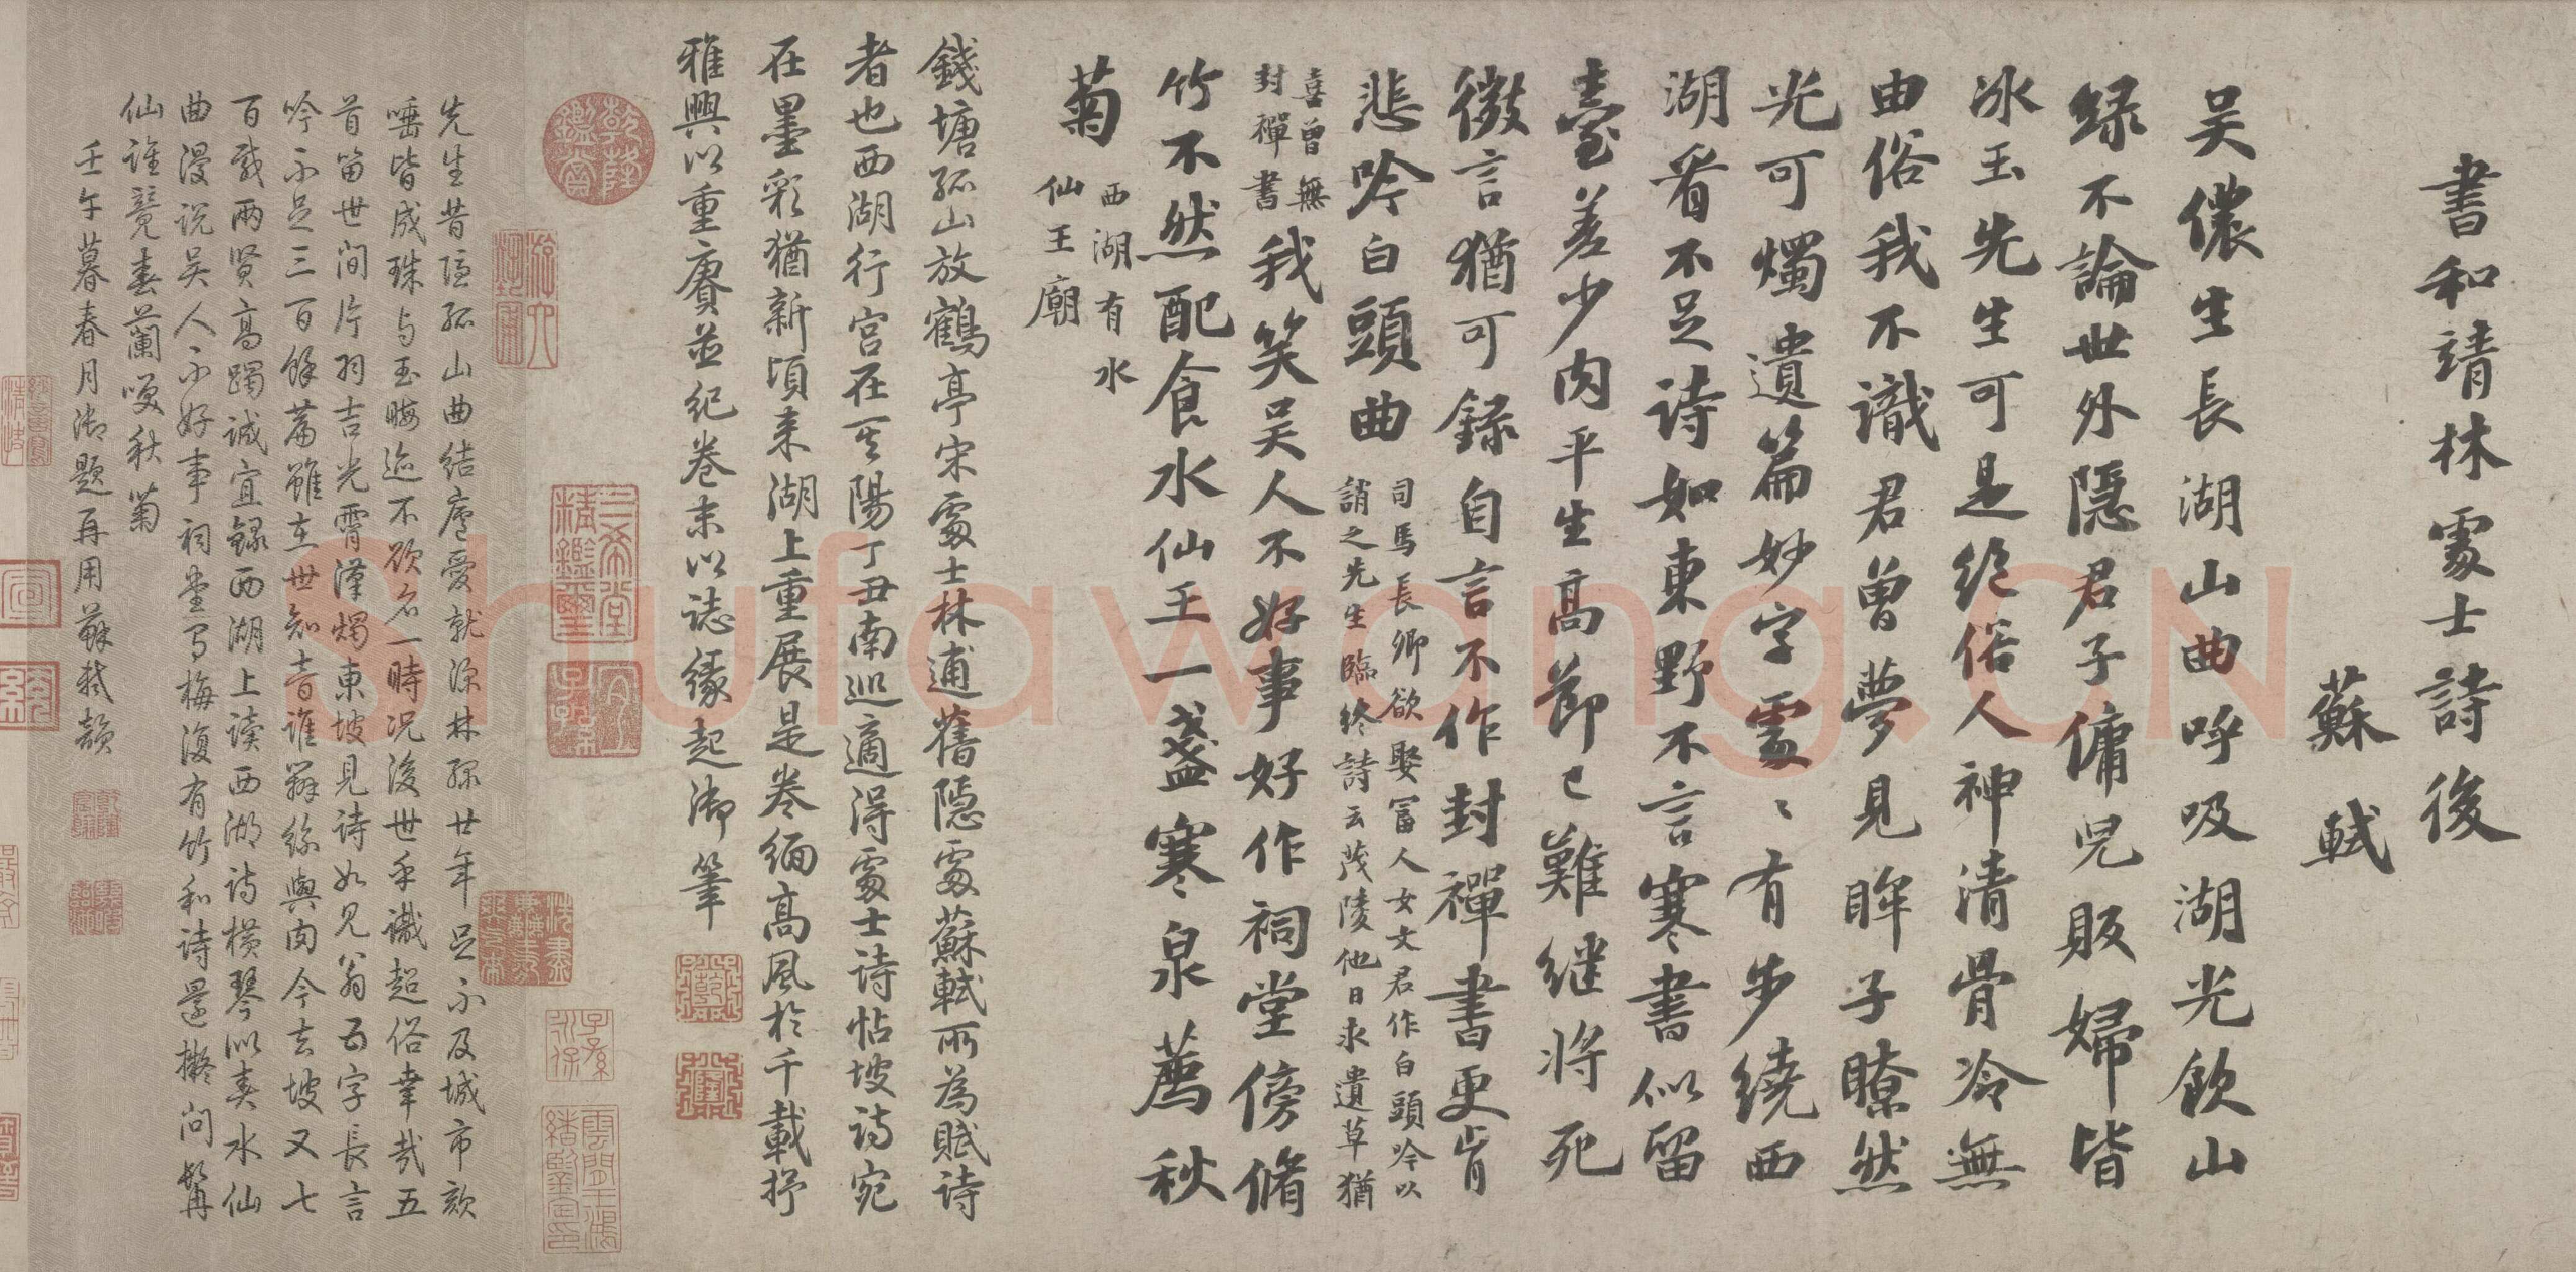 書和靖林處士詩後
蘇軾
吴儂生長湖山曲呼吸湖光飲山
綠不論世外隱君子傭兒販婦皆
冰玉先生可是絕俗人神清骨冷無
由俗我不識君曾夢見眸子瞭然
光可燭遺篇妙字處〻有步繞西
湖看不足詩如東野不言寒書似留
臺差少肉平生高節已難繼將死
微言猶可録自言不作封禪書更肯
悲吟白頭曲
司馬長卿欲娶富人女文君作白頭吟以
誚之先生臨終詩云茂陵他日求遺草猶
喜曾無
封禪書
我笑吴人不好事好作祠堂傍脩
竹不然配食水仙王一盞寒泉薦秋
菊
西湖有水
仙王廟
錢塘孤山放鶴亭宋處士林逋舊隱處蘇軾所為賦詩
者也西湖行宫在其陽丁丑南巡適得處士詩帖坡詩宛
在墨彩猶新頃來湖上重展是卷緬高風於千載抒
雅興以重賡並紀卷末以誌緣起御筆
乾隆鑑賞
三希堂精鑑璽
宜子孫
先生昔隱孤山曲結廬愛就深林綠廿年足不及城市欬
唾皆成珠與玉晦迹不欲名一時況後世乎識超俗幸哉五
首留世間片羽吉光霄漢燭東坡見詩如見翁五字長言
吟不足三百餘篇雖在世知音誰辨絲與肉今去坡又七
百載兩賢高躅誠宜録西湖上讀西湖詩横琴以奏水仙
曲漫說吴人不好事祠堂寫梅復有竹和詩還擬問髯
仙誰竟春蘭嗅秋菊
壬午暮春月御題再用蘇軾韻
shufawang.CN